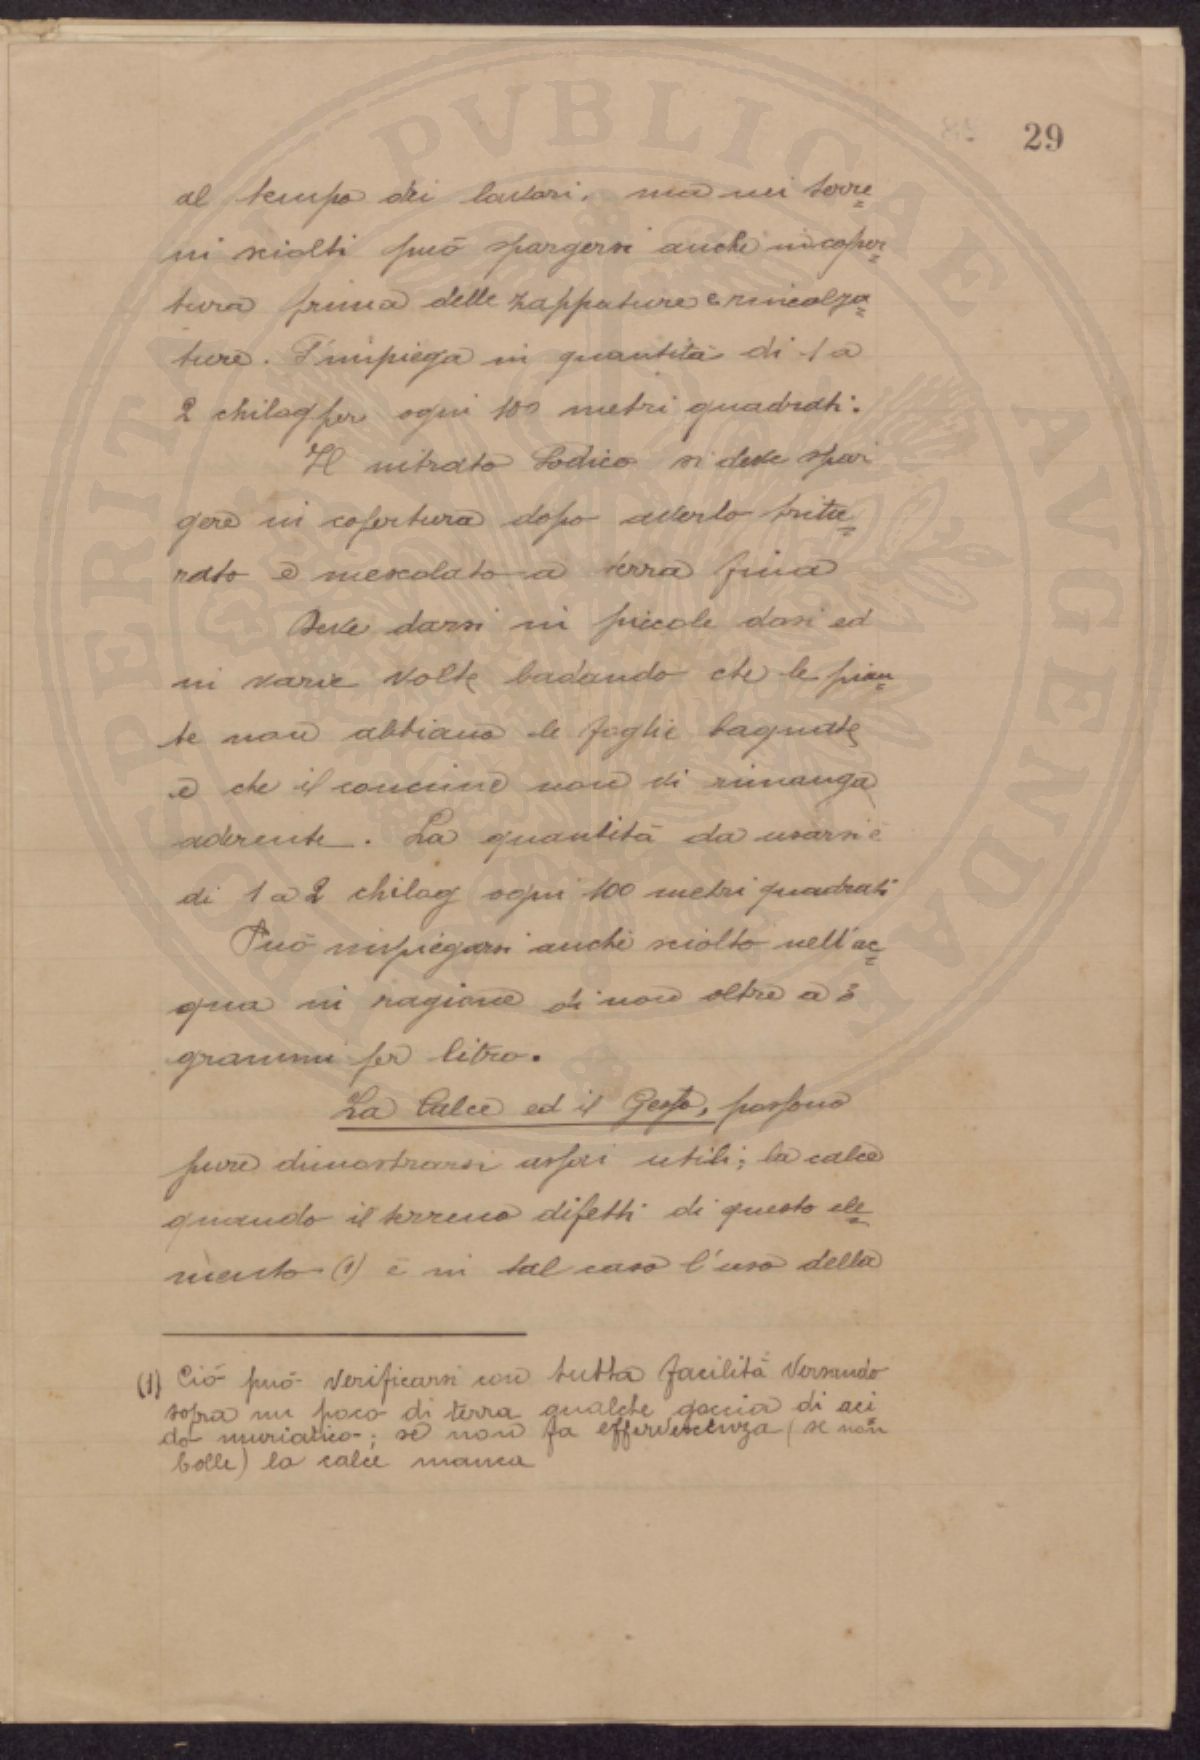 29
al tempo dei lavori, ma nei terre=
ni sciolti può spargersi anche in coper=
tura prima delle zappature e rincalza=
ture. S'impiega in quantità di 1 a
2 chilog per ogni 100 metri quadrati.
Il nitrato Sodico si deve spar
gere in copertura dopo averlo tritu=
rato e mescolato a terra fina
Deve darsi in piccole dosi ed
in varie volte badando che le pian=
te non abbiano le foglie bagnate
e che il concime non vi rimanga
aderente. La quantità da usarsi è
di 1 a 2 chilog ogni 100 metri quadrati
Può impiegarsi anche sciolto nell'ac=
qua in ragione di non oltre a
grammi per litro.
La Calce ed il Gesso, possono
pure dimostrarsi assai utili; la calce
quando il terreno difetti di questo ele=
mento (1) e in tal caso l'uso della
(1) Ciò può verificarsi con tutta facilità versando
sopra un poco di terra qualche goccia di aci
do muriatico; se non fa effervescenza (se non
bolle) la calce manca
PROSPERITATI PVBLICAE AVGENDAE